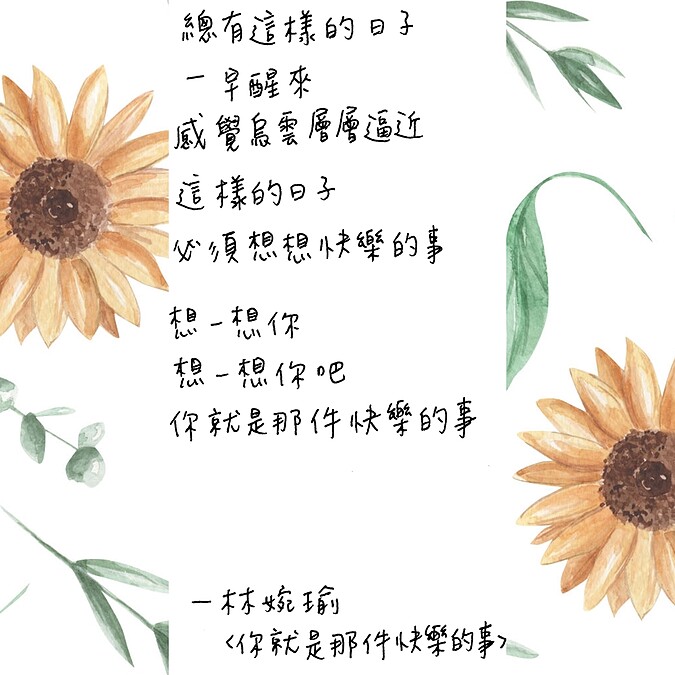 總有這樣的日子
一早醒來
感覺烏雲層層逼近
這樣的日子
必須想想快樂的事
想一想你
想一想你吧
你就是那件快樂的事
—林婉瑜
〈你就是那件快樂的事〉